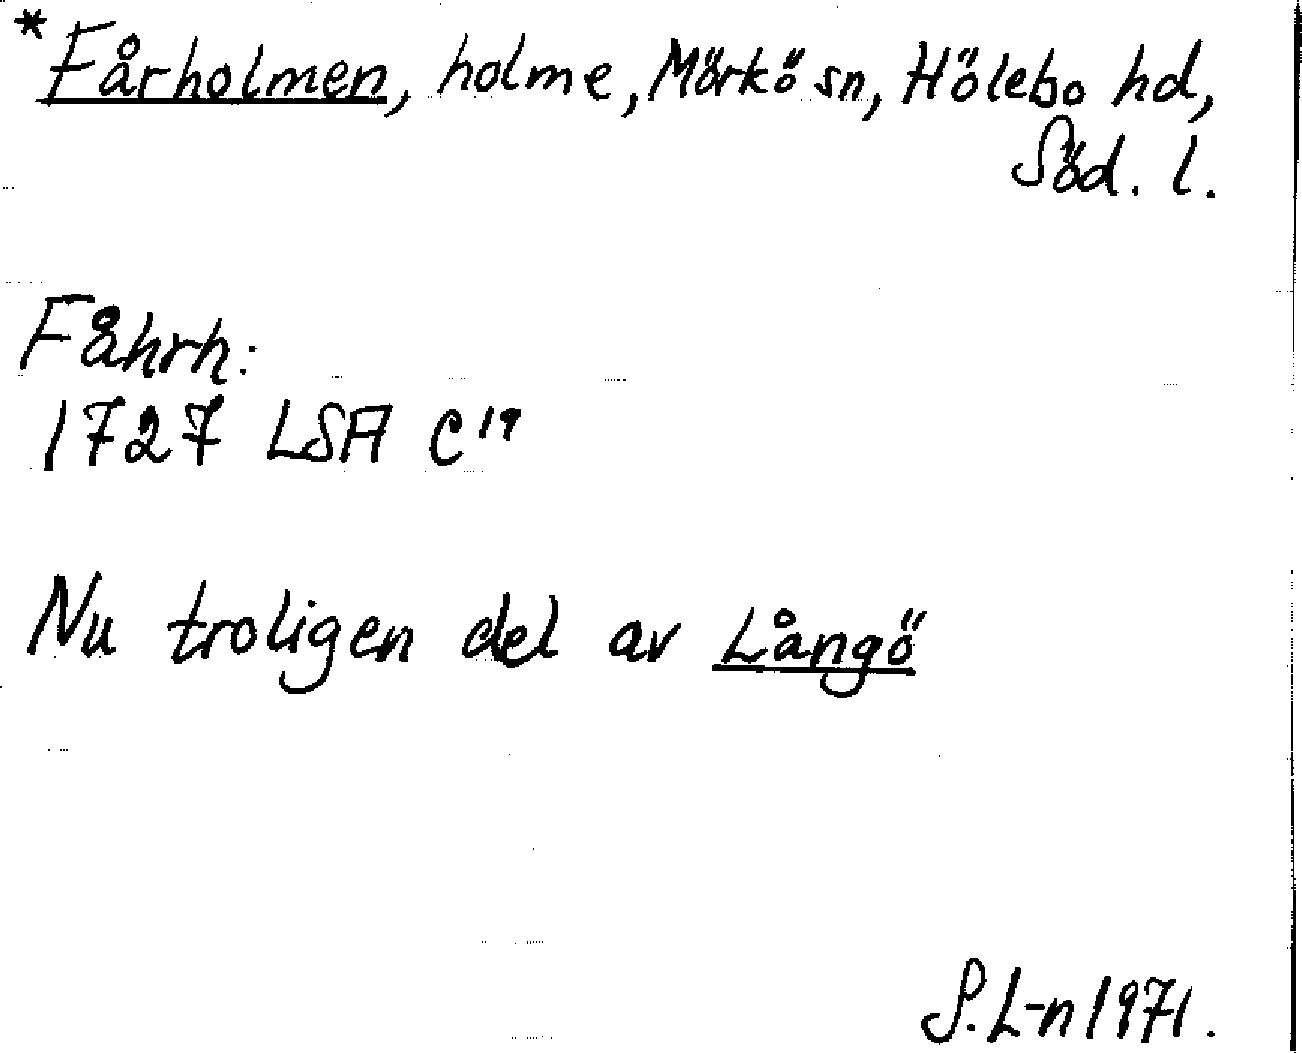 *Fårholmen, holme, Mörkö sn, Hölebo hd,
Söd. l.
Fåhrh:
1727 LSA C19
Nu troligen del av Långö
S. L-n 1971.